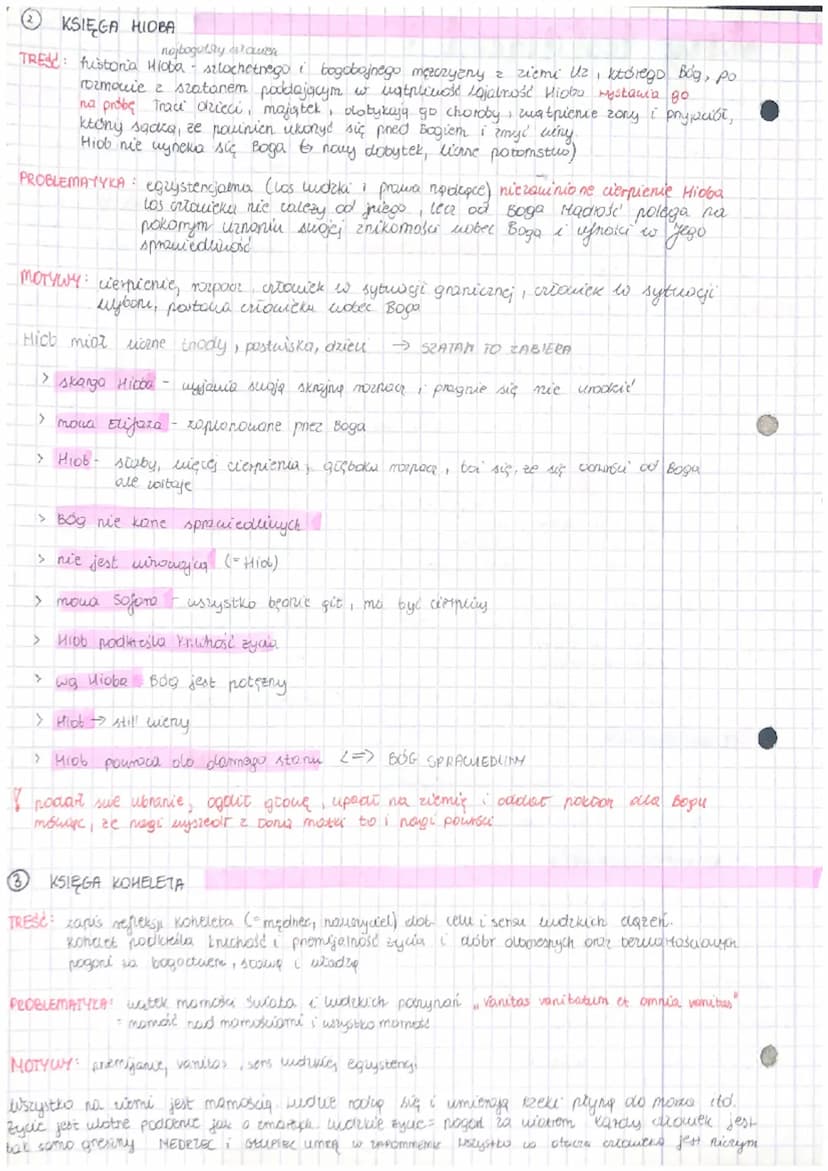 ② KSIĘGA HIOBA
najbogatszy człowiek
TREŚĆ: historia Hioba - szlachetnego i bogobojnego mężczyzny z ziemi Uz, którego Bóg, po
rozmowie z szatanem poddającym w wątpliwość lojalność Hioba wystawia go
na próbę Traci dzieci, majątek, dotykają go choroby, zwątpienie żony i przyjaciół,
którzy sądzą, że powinien ukorzyć się przed Bogiem i zmyć winy.
Hiob nie wyrzeka się Boga (→ nowy dobytek, liczne potomstwo)
PROBLEMATYKA: egzystencjalna (los ludzki i prawa rządzące) niezawinione cierpienie Hioba
los człowieka nie zależy od niego, lecz od Boga Mądrość polega na
pokornym uznaniu swojej znikomości wobec Boga i ufności w Jego
sprawiedliwość
MOTYWY: cierpienie, rozpacz, człowiek w sytuacji granicznej, człowiek w sytuacji
wyboru, postawa człowieka wobec Boga
Hiob miał liczne trzody, pastwiska, dzieci → SZATAN TO ZABIERA
> skarga Hioba - wyjawia swoją skrajną rozpacz i pragnie się nie urodzić
> mowa Elifaza - zaplanowane przez Boga
> Hiob - słaby, więcej cierpienia, głęboka rozpacz, boi się, że się odwróci od Boga
ale zostaje
> Bóg nie karze sprawiedliwych
> nie jest winowajcą (= Hiob)
> mowa Sofara - wszystko będzie git, ma być cierpliwy
> Hiob podkreśla kruchość życia
> wg Hioba Bóg jest potężny
> Hiob → still wierzy
> Hiob powraca do dawnego stanu <=> BÓG SPRAWIEDLIWY
! podarł swe ubranie, ogolił głowę, upadł na ziemię i oddał pokłon dla Bogu
mówiąc, że nagi wyszedł z łona matki to i nagi powróci
③ KSIĘGA KOHELETA
TREŚĆ: zapis refleksji Koheleta (= mędrzec, nauczyciel) dot. celu i sensu ludzkich dążeń.
Kohelet podkreśla kruchość i przemijalność życia i dóbr doczesnych oraz bezwartościowych
pogoni za bogactwem, sławą i władzą
PROBLEMATYKA: wątek marności świata i ludzkich poczynań „Vanitas vanitatum et omnia vanitas"
= marność nad marnościami i wszystko marność
MOTYWY: przemijanie, vanitas, sens ludzkiej egzystencji
Wszystko na ziemi jest marnością. Ludzie rodzą się i umierają rzeki płyną do morza itd.
Życie jest ulotne podobnie jak o zmarłych. Ludzkie życie = pogoń za wiatrem każdy człowiek jest
tak samo grzeszny MĘDRZEC i GŁUPIEC umrą w zapomnienie Wszystko co otacza człowieka jest niczym